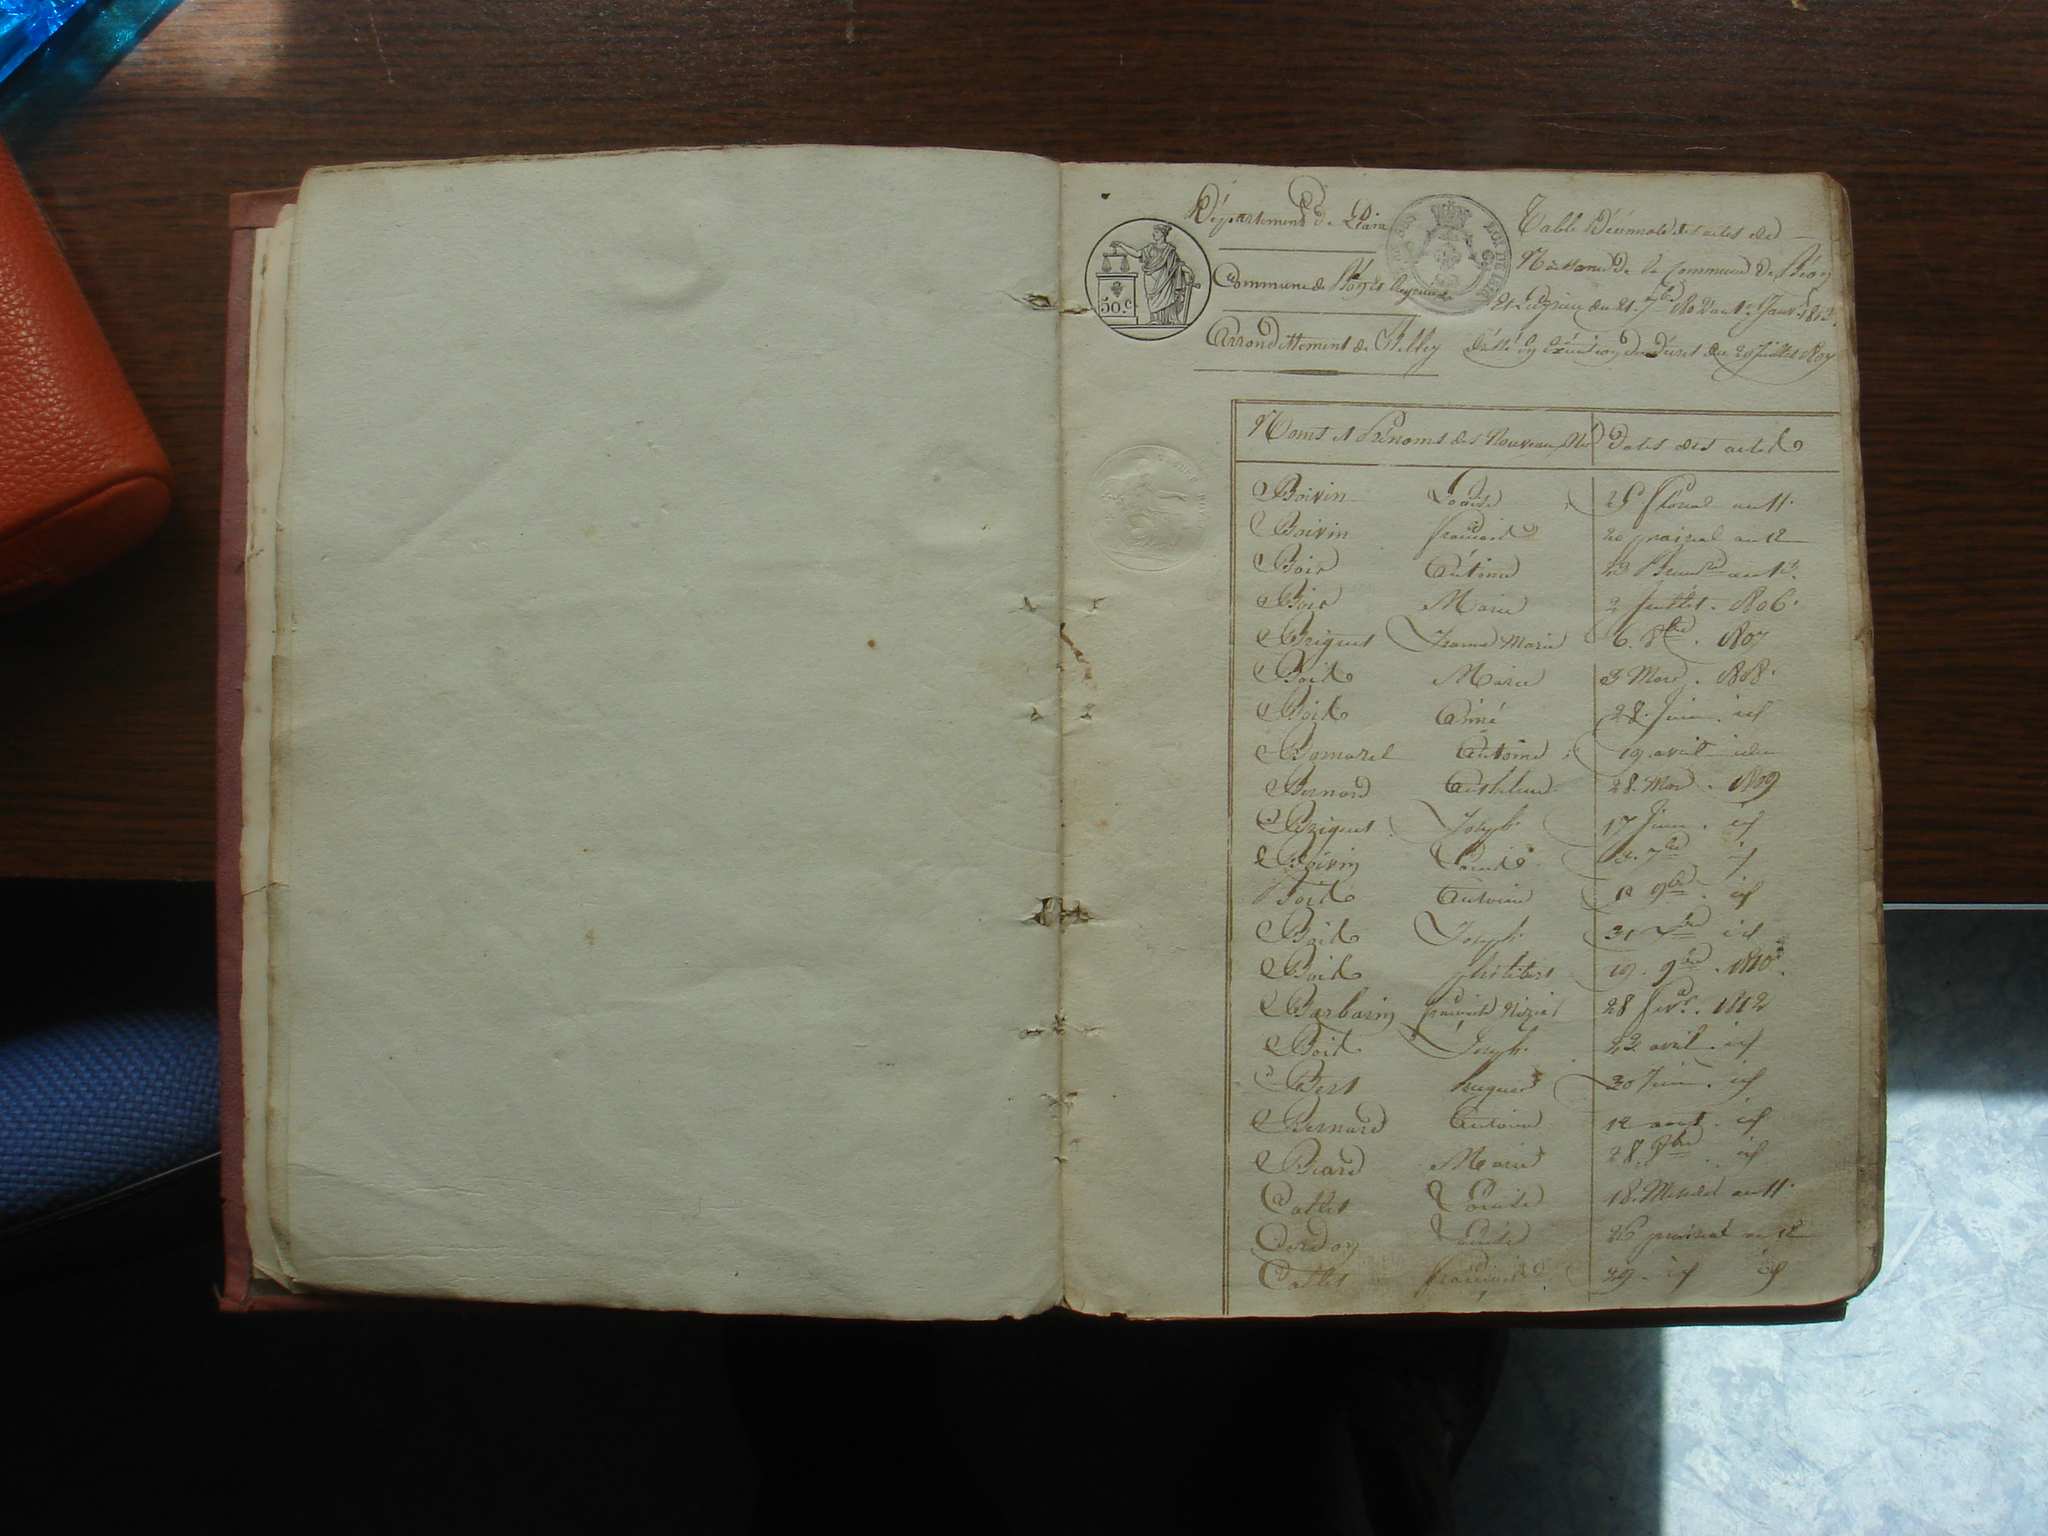 Département de L'ain
Commune de Béon et Luyrieu
Arrondissement de Belley
Table Décennale des actes de
Naissance de la Commune de Béon
Et Luyrieu du 21. 7bre 1802 au 1er Janv. 1813.
Dressé en Exécution du Décret du 20 Juillet 1807
50.c
Noms et Prénoms des Nouveau Nés Dates des actes
Boivin Louise 25 floreal an 11.
Boivin francois 20 prairial an 12
Bois Antoine Brumre an 13.
Bois Marie 2 Juillet. 1806.
Briquet Jeanne Marie 6. 8bre. 1807
Bois Marie 3 Mars. 1808.
Bois Aimé 28. Juin. id
Bomarel Antoine 19. avril idem
Bernard Anthelme 28. Mars. 1809
Briquet Joseph 17 Juin. id
Boivin Louise 7bre id
Bois Antoine 12 9bre. id
Bois Joseph 31 Xbre id
Bois philibert 19. 9bre. 1810.
Barbarin francois Nizier 28 fevr. 1812
Bois Joseph 22 avril. id
Bert hugues 30 Juin. id
Bernard Antoine 12 aout. id
Biard Marie 28. 8bre id
Callet Louise 18. Messidor an 11.
Cerdon Louise 26 prairial an 12
Callet francois 29. id id